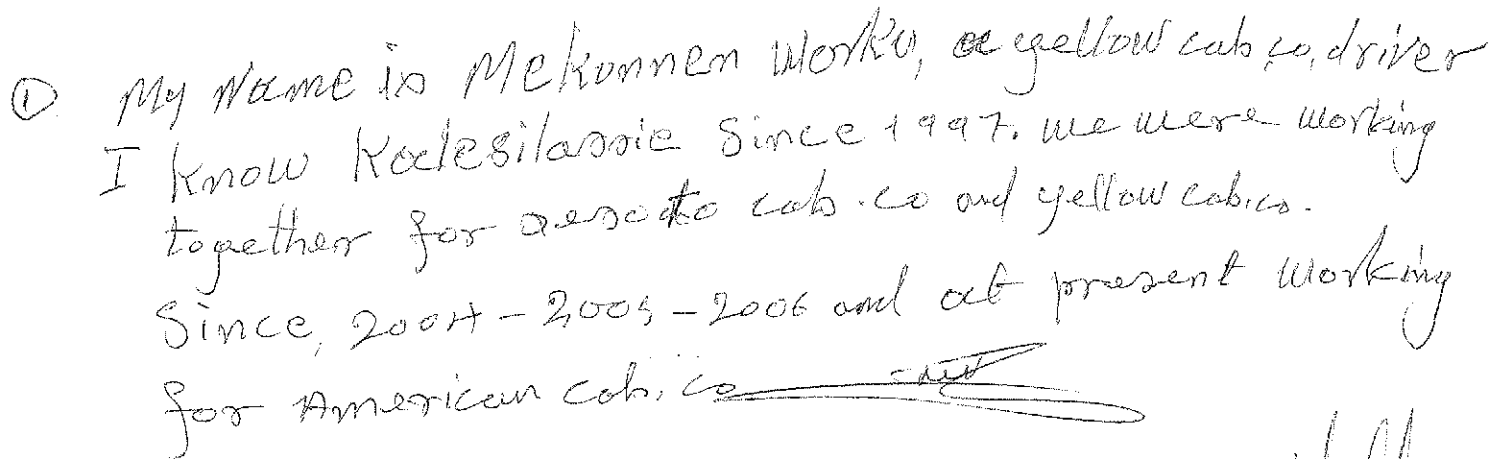 ① My Name is Mekonnen Worku, a yellow cab co, driver
I know Kodesilassie Since 1997. we were working
together for Desoto cab.co and yellow cab.co.
Since, 2004 - 2005 - 2006 and at present working
for American cab.co